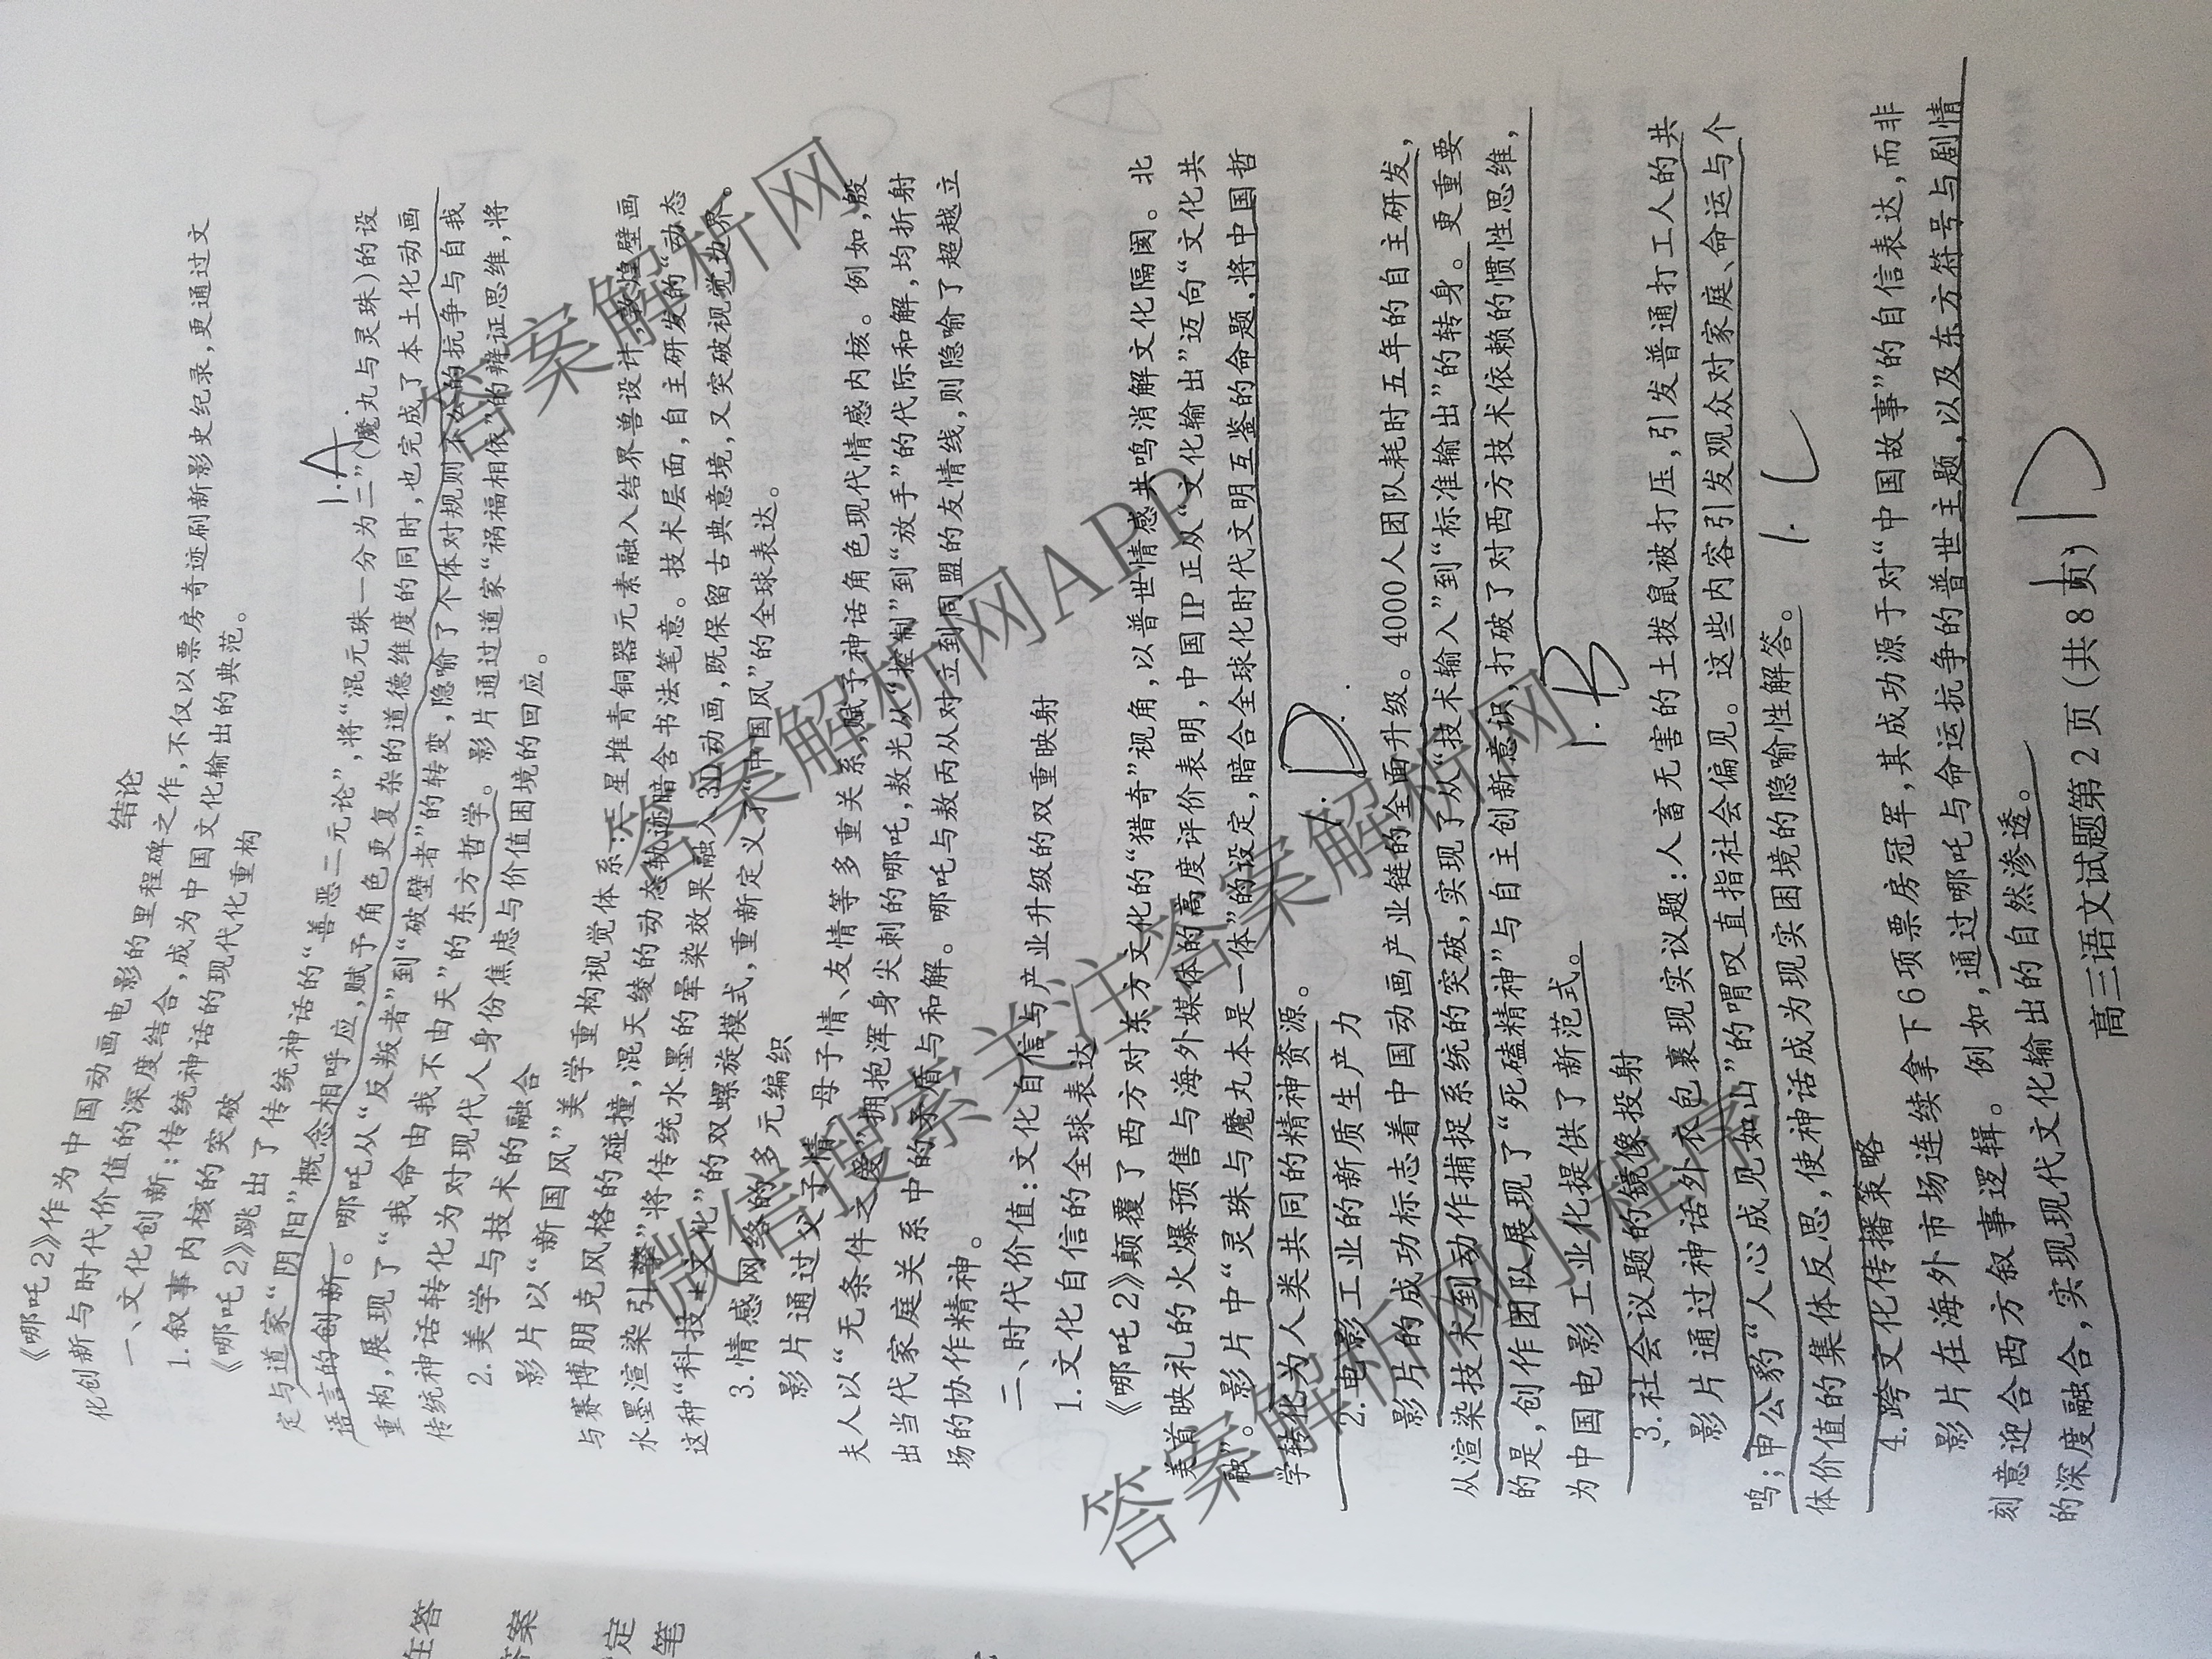 结论
《哪吒2》作为中国动画电影的里程碑之作,不仅以票房奇迹刷新影史纪录,更通过文
化创新与时代价值的深度结合,成为中国文化输出的典范。
一、文化创新:传统神话的现代化重构
1.叙事内核的突破
《哪吒2》跳出了传统神话的“善恶二元论”,将“混元珠一分为二”(魔丸与灵珠)的设
定与道家“阴阳”概念相呼应,赋予角色更复杂的道德维度的同时,也完成了本土化动画
语言的创新。哪吒从“反叛者”到“破壁者”的转变,隐喻了个体对规则不公的抗争与自我
重构,展现了“我命由我不由天”的东方哲学。影片通过道家“祸福相依”的辩证思维,将
传统神话转化为对现代人身份焦虑与价值困境的回应。
1.A
2.美学与技术的融合
影片以“新国风”美学重构视觉体系:三星堆青铜器元素融入结界兽设计,敦煌壁画
与赛博朋克风格的碰撞,混天绫的动态轨迹暗含书法笔意。技术层面,自主研发的“动态
水墨渲染引擎”将传统水墨的晕染效果融入3D动画,既保留古典意境,又突破视觉边界。
这种“科技+文化”的双螺旋模式,重新定义了“中国风”的全球表达。
3.情感网络的多元编织
影片通过父子情、母子情、友情等多重关系,赋予神话角色现代情感内核。例如,殷
夫人以“无条件之爱”拥抱浑身尖刺的哪吒,敖光从“控制”到“放手”的代际和解,均折射
出当代家庭关系中的矛盾与和解。哪吒与敖丙从对立到同盟的友情线,则隐喻了超越立
场的协作精神。
二、时代价值:文化自信与产业升级的双重映射
1.文化自信的全球表达
《哪吒2》颠覆了西方对东方文化的“猎奇”视角,以普世情感共鸣消解文化隔阂。北
美首映礼的火爆预售与海外媒体的高度评价表明,中国IP正从“文化输出”迈向“文化共
融”。影片中“灵珠与魔丸本是一体”的设定,暗合全球化时代文明互鉴的命题,将中国哲
学转化为人类共同的精神资源。
1.D
2.电影工业的新质生产力
影片的成功标志着中国动画产业链的全面升级。4000人团队耗时五年的自主研发,
从渲染技术到动作捕捉系统的突破,实现了从“技术输入”到“标准输出”的转身。更重要
的是,创作团队展现了“死磕精神”与自主创新意识,打破了对西方技术依赖的惯性思维,
为中国电影工业化提供了新范式。
1.B
3.社会议题的镜像投射
影片通过神话外衣包裹现实议题:人畜无害的土拨鼠被打压,引发普通打工人的共
鸣;申公豹“人心成见如山”的喟叹直指社会偏见。这些内容引发观众对家庭、命运与个
体价值的集体反思,使神话成为现实困境的隐喻性解答。
1.C
4.跨文化传播策略
影片在海外市场连续拿下6项票房冠军,其成功源于对“中国故事”的自信表达,而非
刻意迎合西方叙事逻辑。例如,通过哪吒与命运抗争的普世主题,以及东方符号与剧情
的深度融合,实现现代文化输出的自然渗透。
1D
高三语文试题第2页(共8页)
在答
答案
定
笔
答案解析网
微信搜索关注答案解析网APP
答案解析网